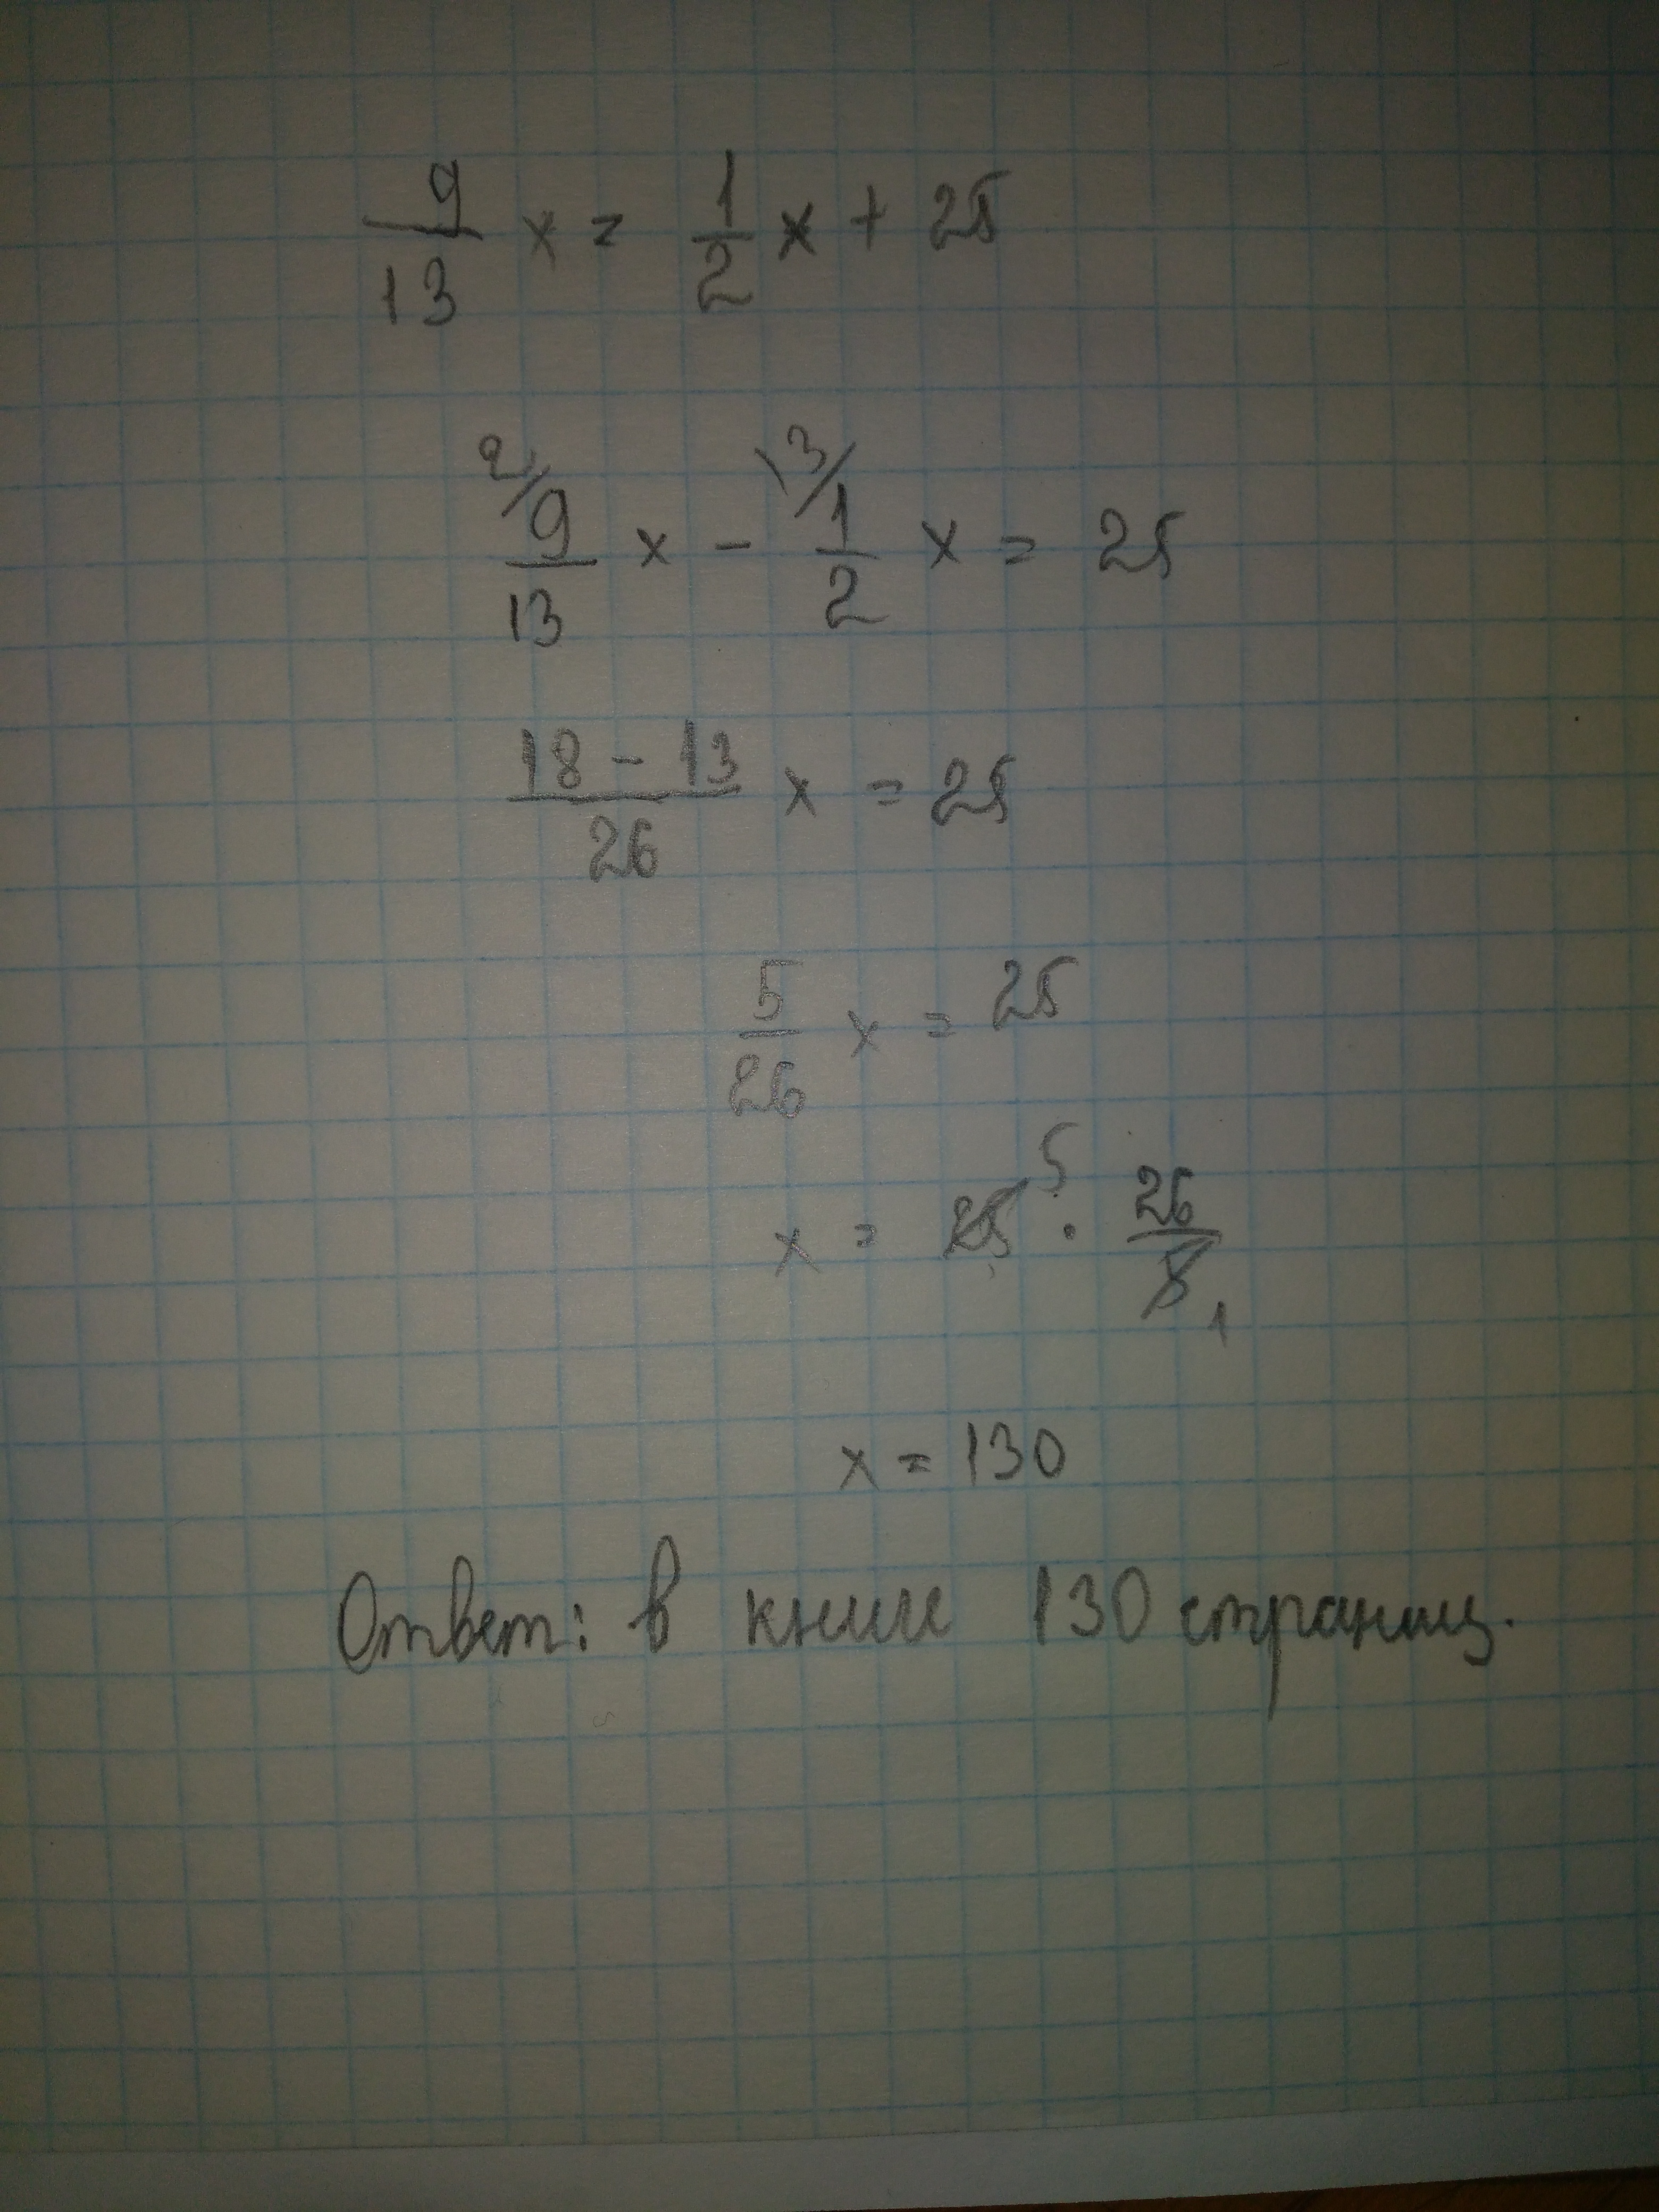 9/13 x = 1/2 x + 25
2/ 9/13 x - 13/ 1/2 x = 25
18 - 13 / 26 x = 25
5/26 x = 25
x = 25 5 · 26/5 1
x = 130
Ответ: в книге 130 страниц.